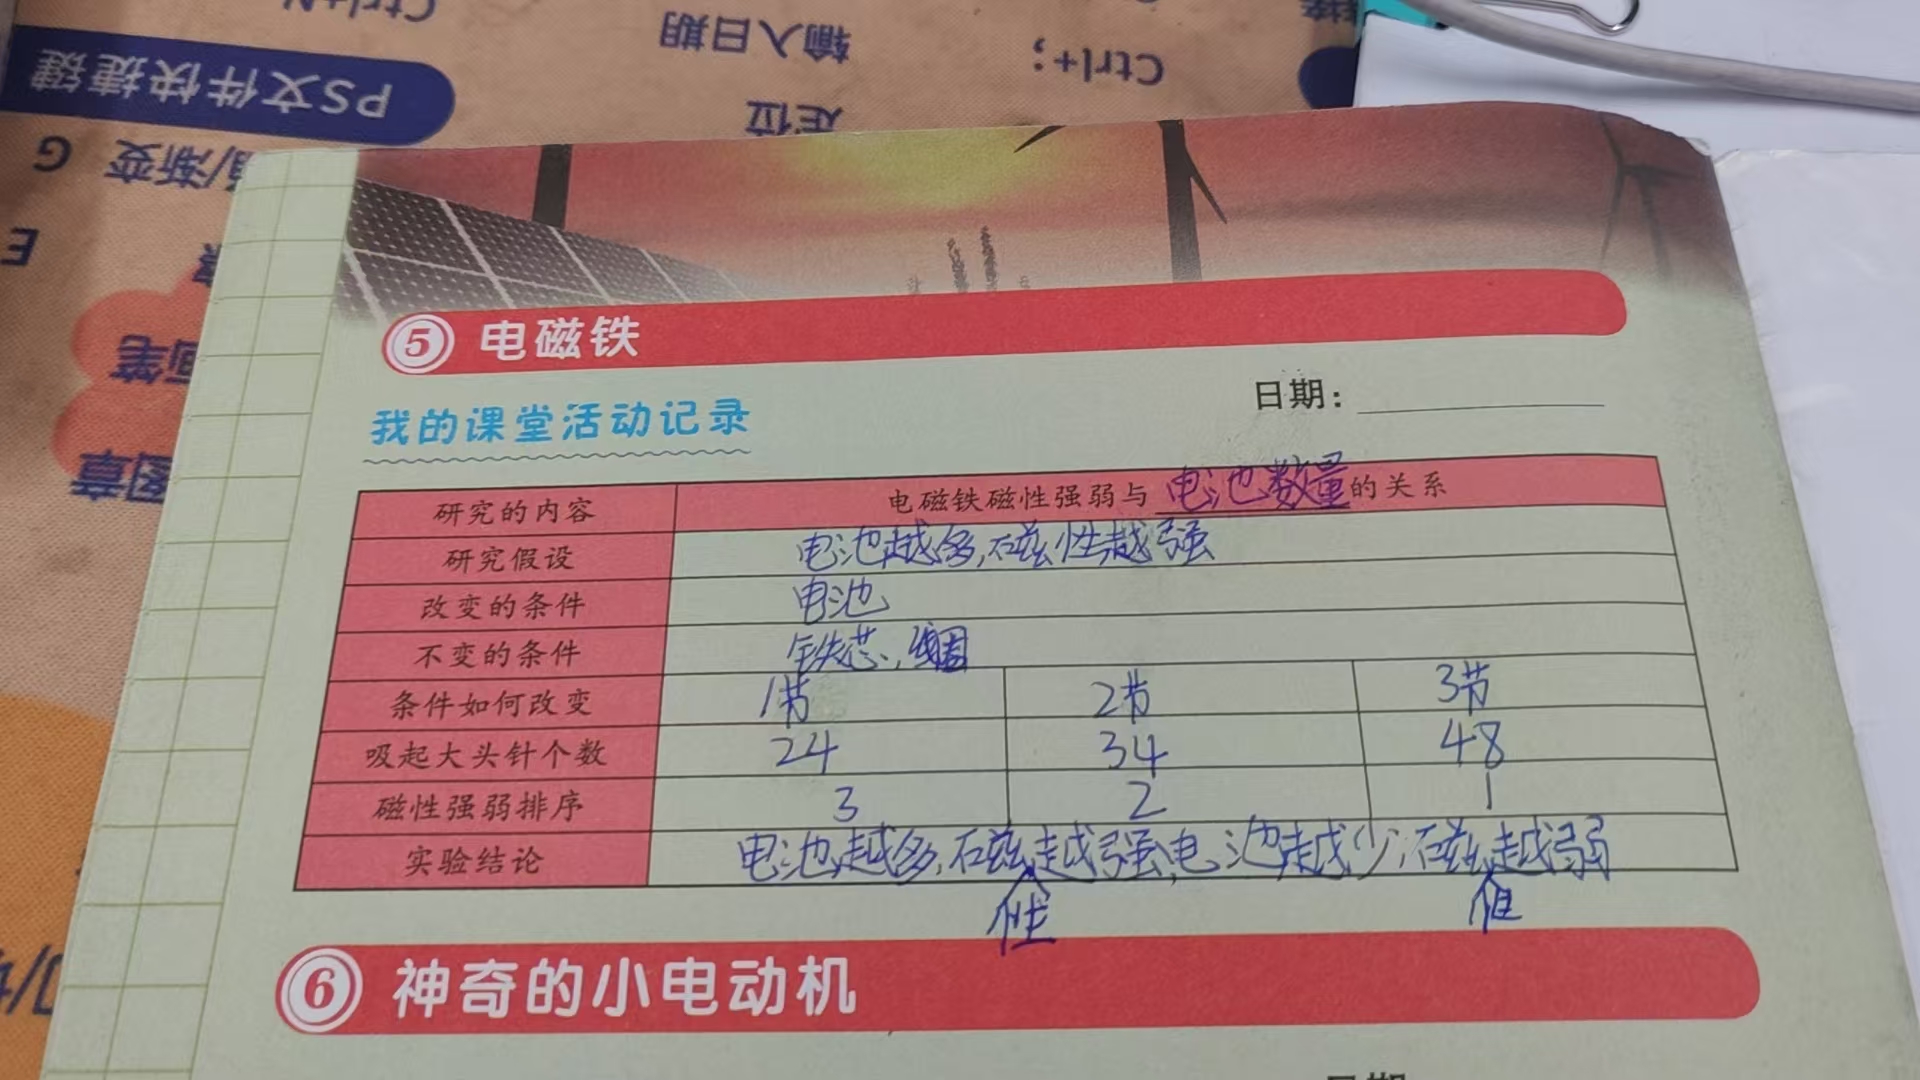 Ctrl+N
输入日期
Ctrl+;
PS文件快捷键
定位
渐变 G
E
画笔
图章
5 电磁铁
日期:
我的课堂活动记录
研究的内容 电磁铁磁性强弱与 电池数量 的关系
研究假设 电池越多,磁性越强
改变的条件 电池
不变的条件 铁芯,线圈
条件如何改变 1节 2节 3节
吸起大头针个数 24 34 48
磁性强弱排序 3 2 1
实验结论 电池越多,磁性越强,电池越少,磁性越弱
6 神奇的小电动机
日期